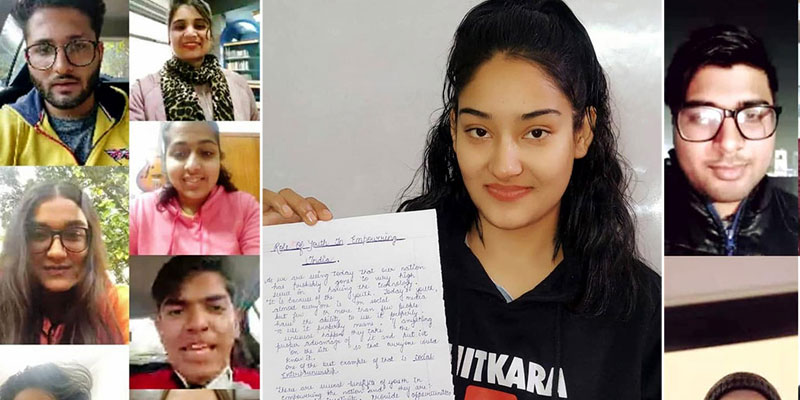 Role Of Youth In Empowering
India.
As we are seeing today that our nation
has perfectly gone to very high
level in having the technology.
It is because of the youth. Today's youth,
almost everyone is on social media
but few of more than few people
have the ability to use it perfectly.
to use it perfectly means, if anything
serious happens they take the
proper advantage of it and put it
on the so that everyone could
know it.
One of the best example of that is Social
Entrepreneurship.
There are several benefits of youth in
empowering the nation and they are
provide opportunities
ITKARA